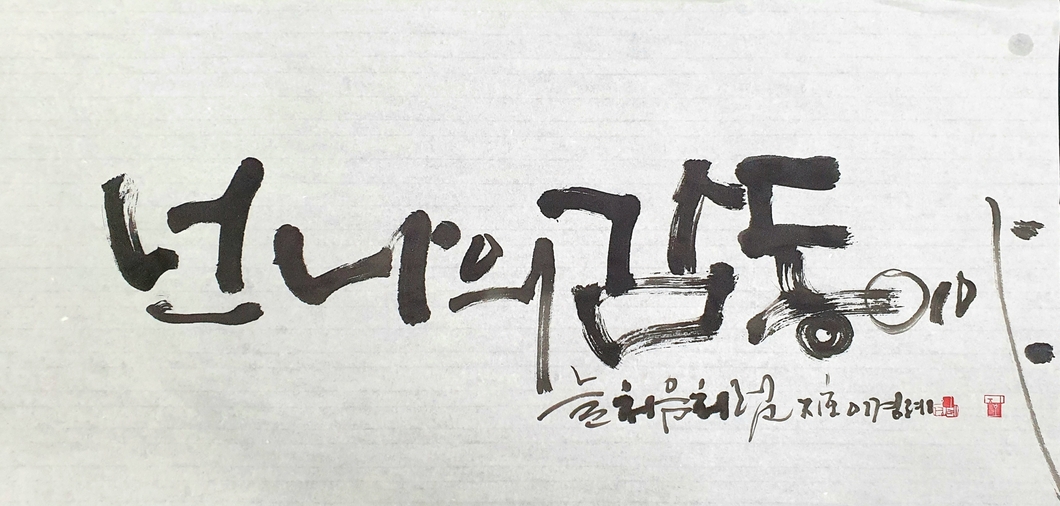 넌 나의 감동이야
늘 처음처럼 지호 이경례